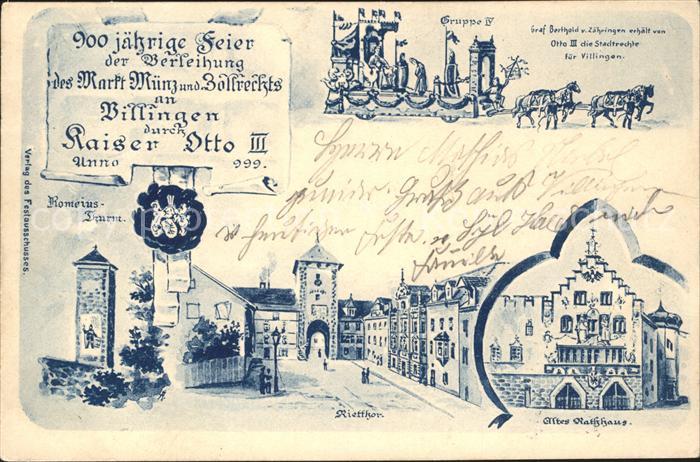 900 jährige Feier
der Verleihung
des Markt Münz und Zollrechts
an
Villingen
durch
Kaiser Otto III
Anno 999.
Gruppe IV
Graf Berthold v. Zähringen erhält von
Otto III die Stadtrechte
für Villingen.
Verlag des Festausschusses.
Romeius-
Thurm.
Herrn
Gruß aus
Familie
Rietthor.
Altes Rathhaus.